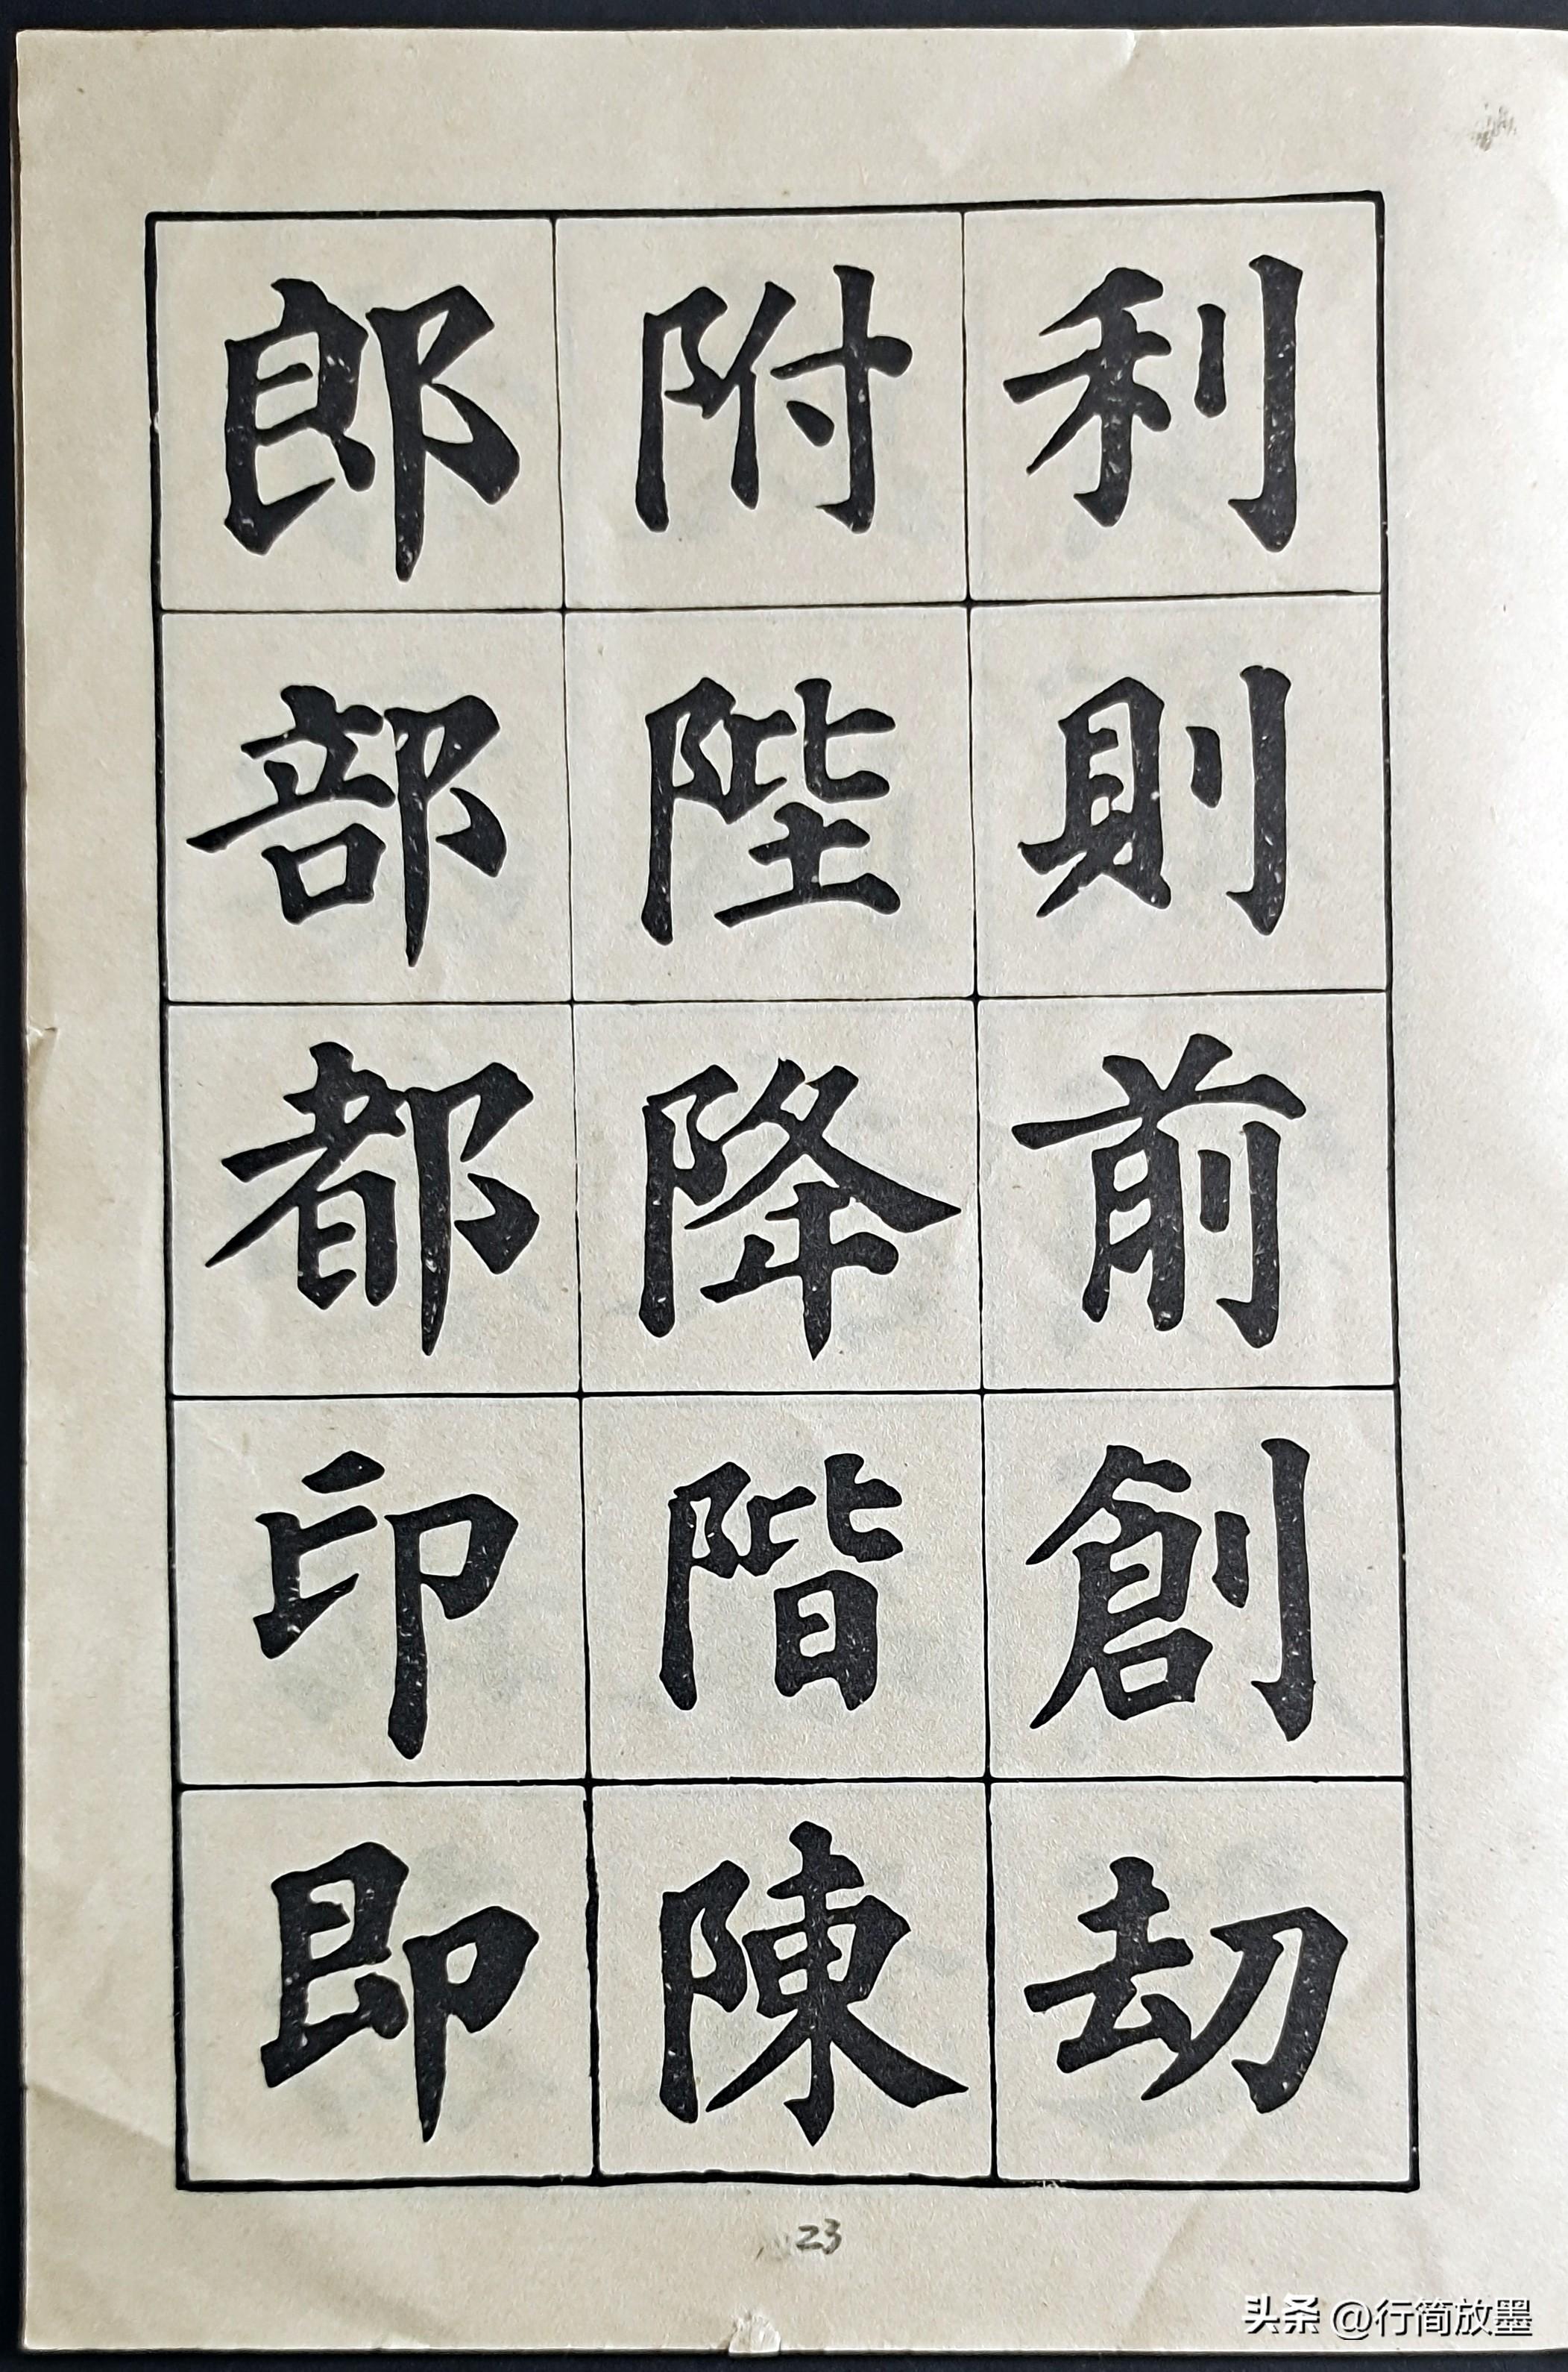 利則前創劫
附陛降階陳
郎部都印即
23
头条 @行简放墨